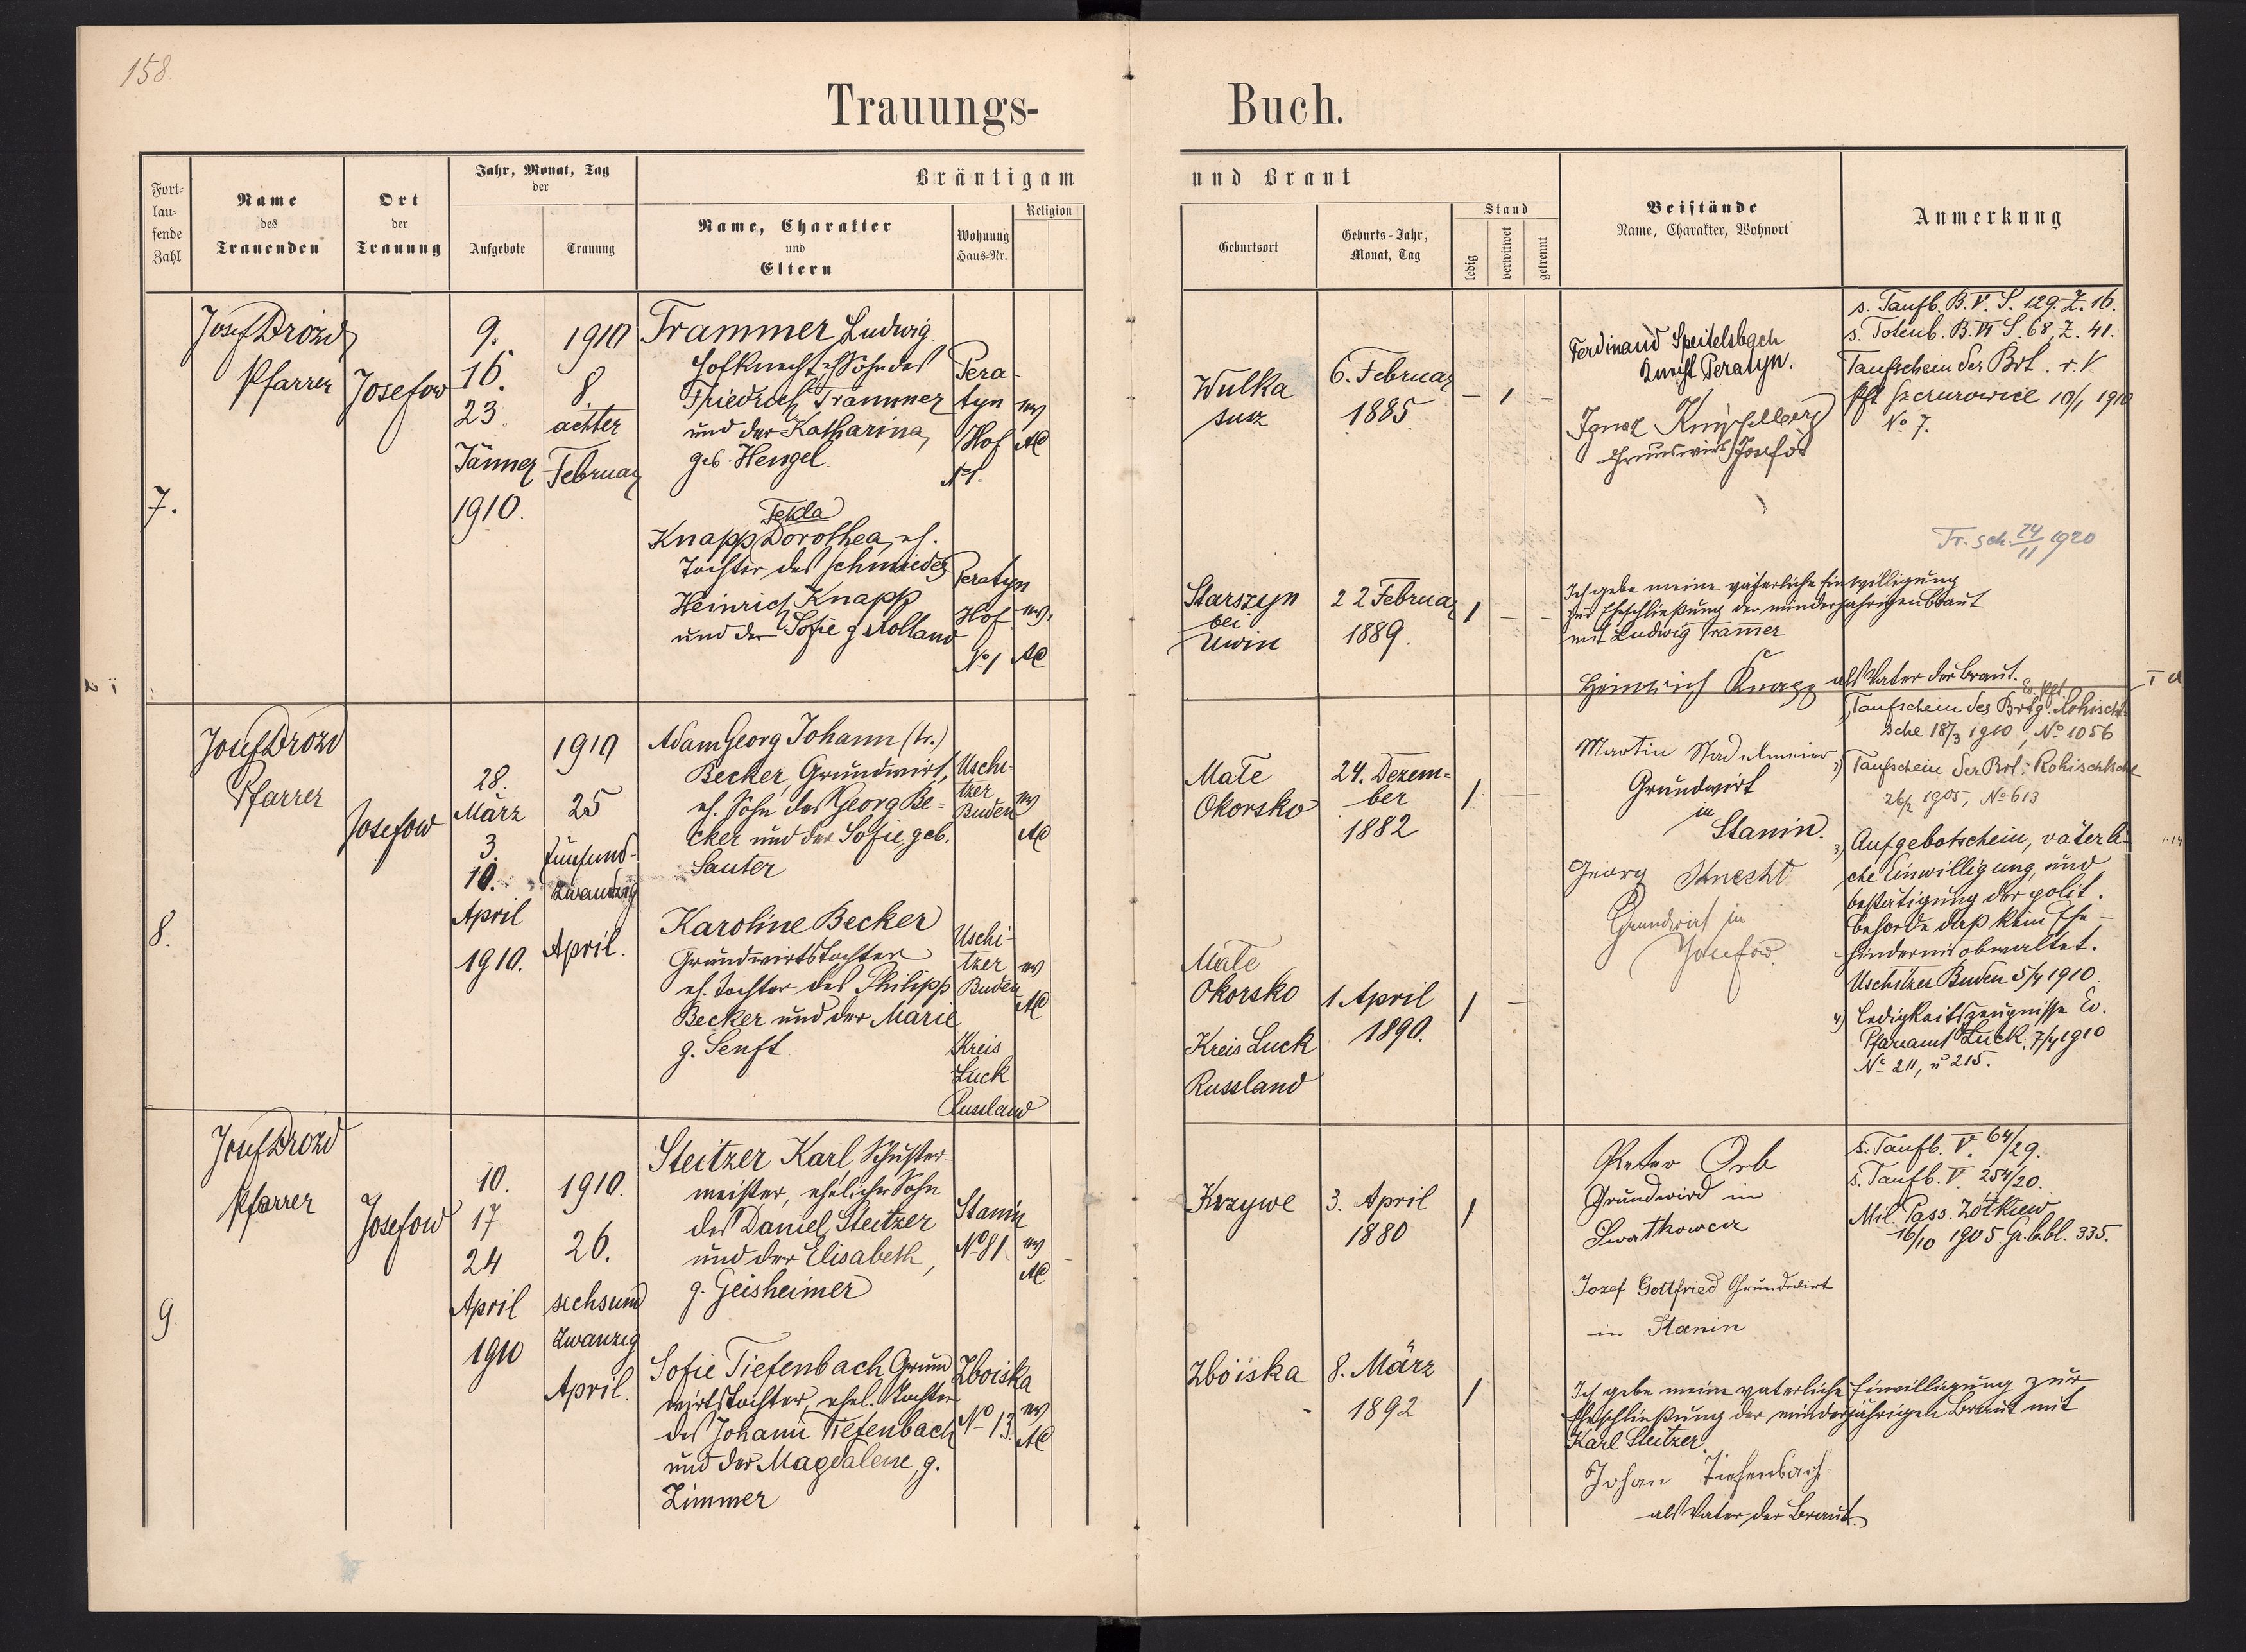 158.
Trauungs-
Buch.
Fort-
lau-
fende
Zahl
Name
des
Trauenden
Ort
der
Trauung
Jahr, Monat, Tag
der
Aufgebote
Trauung
Bräutigam
Name, Charakter
und
Eltern
Wohnung
Haus-Nr.
Religion
und Braut
Geburtsort
Geburts-Jahr,
Monat, Tag
Stand
ledig
verwitwet
getrennt
Beistände
Name, Charakter, Wohnort
Anmerkung
7.
Josef Drozd
Pfarrer
Josefow
9.
16.
23.
Jänner
1910.
1910
8.
achter
Februar
Trammer Ludwig
Hofknecht, eh. Sohn des
Friedrich Trammer
und der Katharina,
geb. Hengel.
Pera-
tyn
Hof
No 1.
ev
AC
Tekla
Knapp Dorothea, eh.
Tochter des Schmiedes
Heinrich Knapp
und der Sofie g Rolland
Peratyn
Hof
No 1
ev.
AC
Wulka
susz
6. Februar
1885.
– / –
Starszyn
bei
Uwin
22 Februar
1889.
/ – –
Ferdinand Speitelsbach
Knecht Peratyn.
Ignaz
Grundwirt Josefow
Ich gebe meine väterliche Einwilligung
zur Eheschließung der minderjährigen Braut
mit Ludwig Tramer
Heinrich Knapp als Vater der Braut.
s. Taufb. B. V. S. 129. Z. 16.
s. Totenb. B. VI S. 68, Z. 41.
Taufschein der Brt. r. V.
Pft Szczurowice 10/1 1910
No 7.
Tr. sch. 24/11 1920
8.
Josef Drozd
Pfarrer
Josefow
28.
März
3.
10.
April
1910.
1910
25
fünfund-
zwanzig
April.
Adam Georg Johann (tr.)
Becker, Grundwirt,
eh. Sohn des Georg Be-
cker und der Sofie, geb.
Sauter
Uschi-
tzer
Buden
ev
AC
Karoline Becker
Grundwirtstochter
eh. Tochter des Philipp
Becker und der Marie
g. Senft
Uschi-
tzer
Buden
Kreis
Luck
Russland
ev
AC
Mate
Okorsko
24. Dezem-
ber
1882
/ –
Mate
Okorsko
Kreis Luck
Russland
1 April
1890.
/ –
Martin Stadelmeier
Grundwirt
in
Stanin.
Georg Knecht
Grundwirt in
Josefow.
Taufschein des Brtg. Rohischt-
sche 18/3 1910, No 1056
2) Taufschein der Brt. Rohischtsche
26/2 1905, No 613
3) Aufgebotschein, väterli-
che Einwilligung, und
bestätigung der polit.
Behörde daß kein Ehe-
hindernis obwaltet.
Uschitzer Buden 5/4 1910.
4) Ledigkeitszeugnisse Ev.
Pfarramt Luck. 7/4 1910
No 211, u 215.
9
Josef Drozd
Pfarrer
Josefow
10.
17
24
April
1910
1910.
26.
sechsund
zwanzig
April.
Steitzer Karl, Schuster-
meister, ehelicher Sohn
des Daniel Steitzer
und der Elisabeth,
g. Geisheimer
Stanin
No 81
ev
AC
Sofie Tiefenbach Grund
wirtstochter, ehel. Tochter
des Johann Tiefenbach
und der Magdalene, g.
Zimmer
Zboiska
No 13.
ev
AC
Krzywe
3. April
1880
/
Zboiska
8. März
1892
/
Peter Orb
Grundwird in
Jozef Gottfried Grundwirt
in Stanin
Ich gebe meine vaterliche Einwilligung zur
Eheschließung der minderjährigen Braut mit
Karl Steitzer.
Johan Tiefenbach
als Vater der Braut.
s. Taufb. V. 64/29.
s. Taufb. V. 254/20.
Mil. Pass. Zółkiew
16/10 1905. Gr. b. bl. 335.